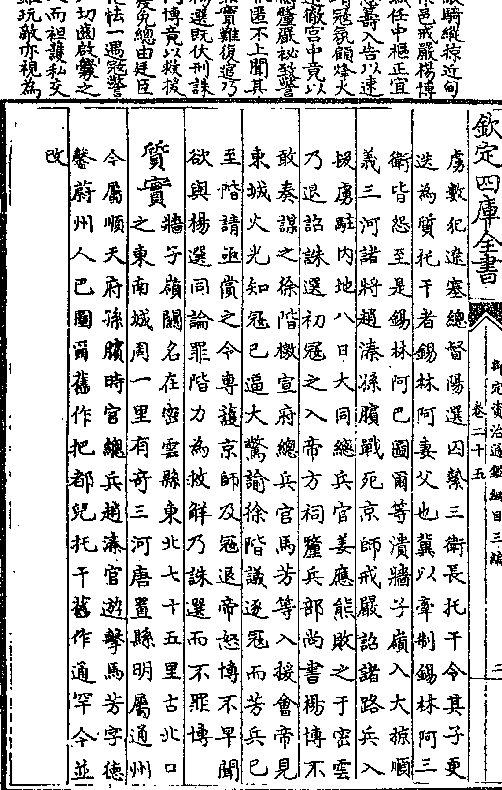 欽定四庫全書
御定資治通鑑綱目三編
卷二十五
二
虜數犯遼塞總督陽選囚縶三衛長托干令其子更
迭為質托干者錫林阿妻父也冀以牽制錫林阿三
衛皆怨至是錫林阿巴圖爾等潰牆子嶺入大掠順
義三河諸將趙溱孫臏戰死京師戒嚴詔諸路兵入
援虜駐内地八日大同總兵官姜應熊敗之于密雲
乃退詔誅選初冦之入帝方祠釐兵部尚書楊博不
敢奏謀之徐階檄宣府總兵官馬芳等入援會帝見
東城火光知冦已逼大驚諭徐階議逐冦而芳兵已
至階請亟賞之令專護京師及冦退帝怒博不早聞
欲與楊選同論罪階力為救解乃誅選而不罪博
質實
牆子嶺關名在密雲縣東北七十五里古北口
之東南城周一里有奇三河唐置縣明屬通州
今屬順天府孫臏時官總兵趙溱官遊擊馬芳字德
馨蔚州人巴圖爾舊作把都兒托干舊作通罕今並
改
騎縱掠近甸
邑戒嚴楊博
職任中樞正宜
籌入告以速
冦氛顧烽火
徹宫中竟以
釐嚴秘終警
匿不上聞其
實難復追乃
楊選既伏刑誅
博竟以救援
免總由廷臣
怯一遇冦警
切齒啟釁之
而袒護私交
玩敵亦視為